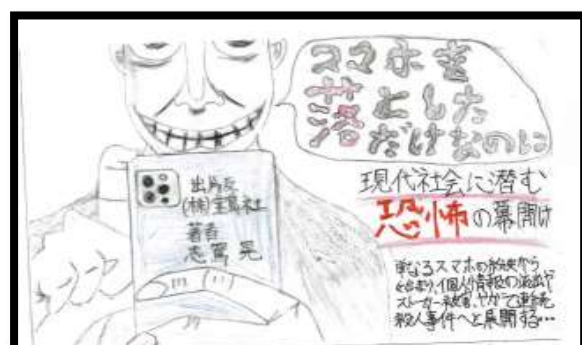 スマホを
落とした
だけなのに
現代社会に潜む
恐怖の幕開け
出版度
(株)宝島社
著者
志駕 晃
単なるスマホの紛失から
始まり、個人情報の流出や
ストーカー被害、やがて連続
殺人事件へと展開する…